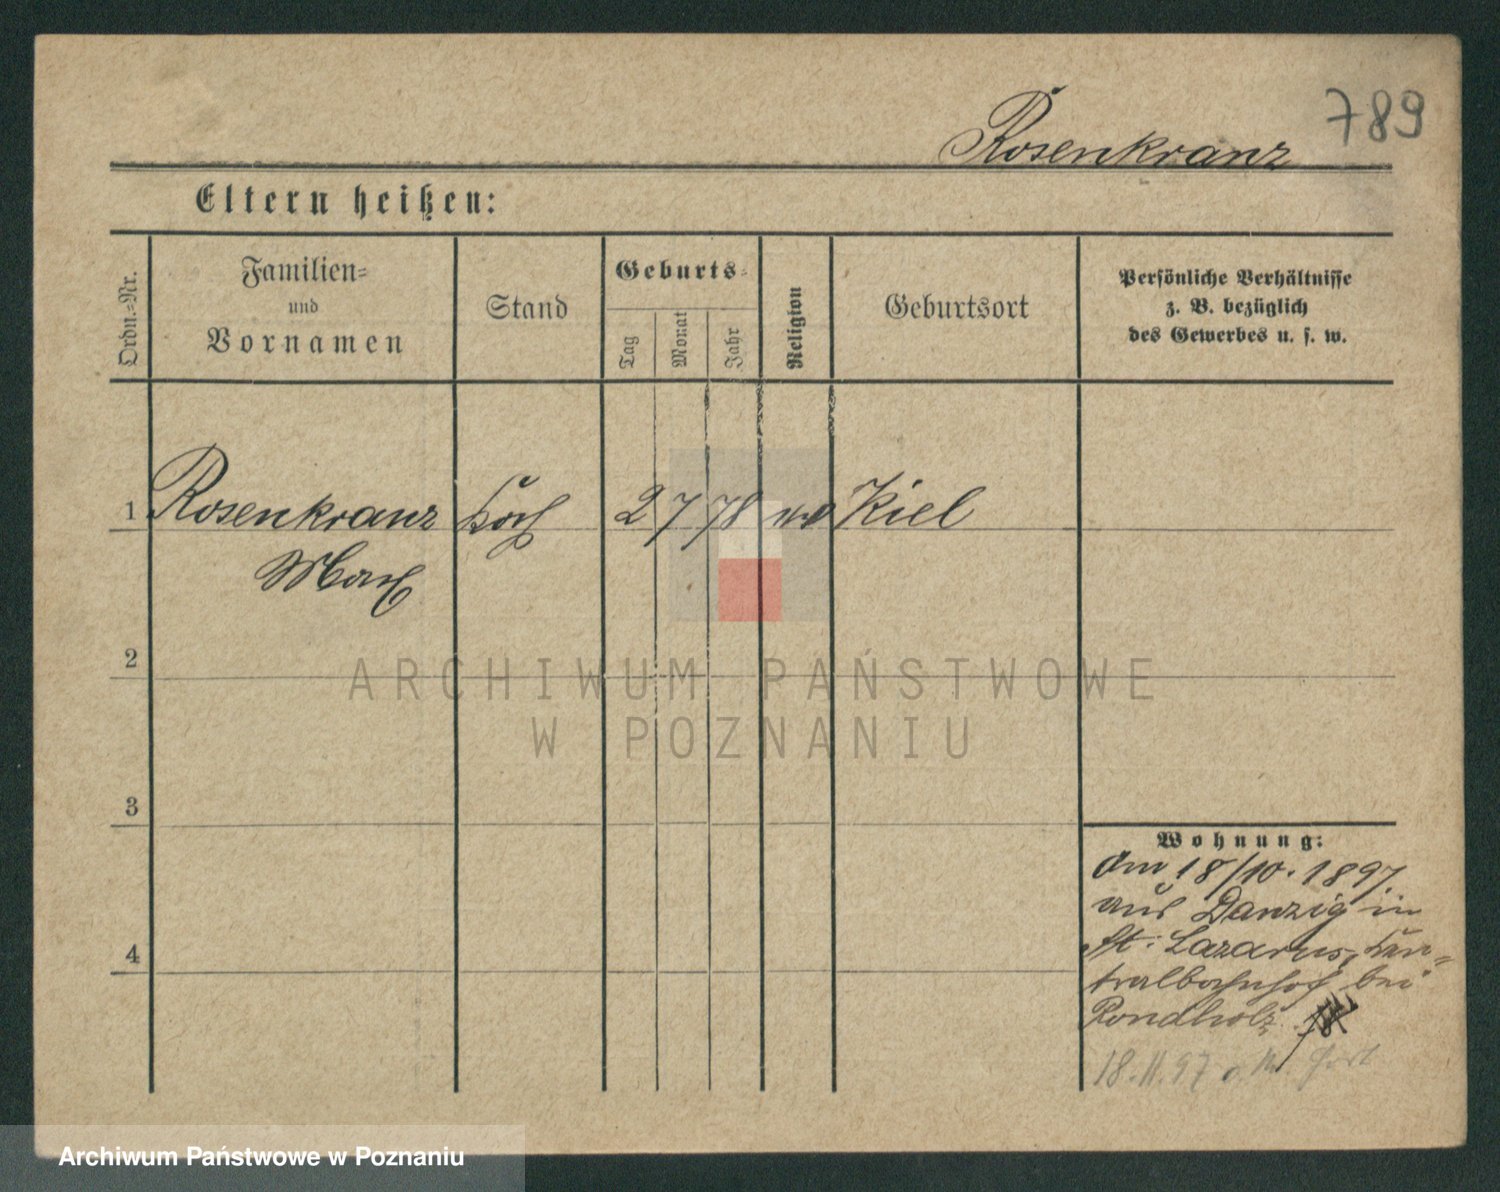 789
Rosenkranz
Eltern heißen:
Ordn.-Nr.
Familien-
und
Vornamen
Stand
Geburts-
Tag
Monat
Jahr
Religion
Geburtsort
Persönliche Verhältnisse
z. B. bezüglich
des Gewerbes u. s. w.
1 Rosenkranz Koch 2 7 78 Kiel
Max
2
ARCHIWUM PAŃSTWOWE
W POZNANIU
3
Wohnung:
Am 18/10. 1897
aus Danzig in
St. Lazarus, Zen-
4
tralbahnhof bei
Rondholz
18.11.97 fort
Archiwum Państwowe w Poznaniu